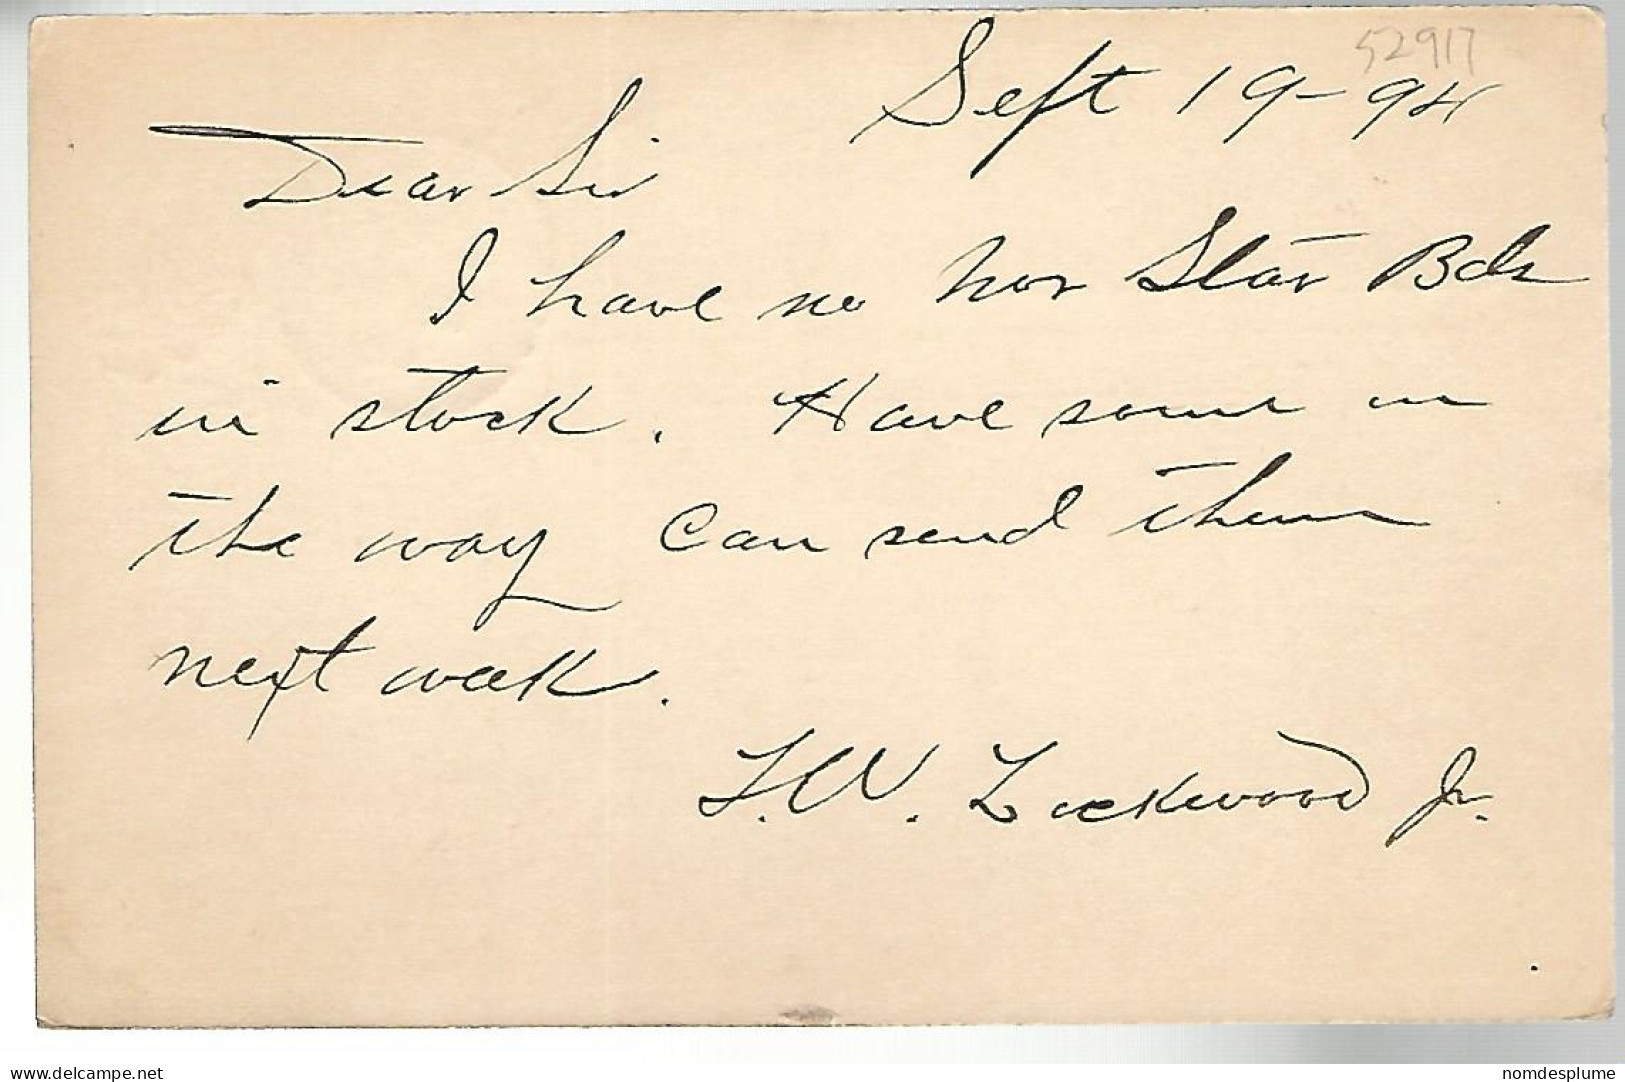 52917
Sept 19-94
Dear Sir
I have no nor Star Bds
in stock. Have some on
the way can send them
next week.
F.W. Lockwood Jr.
delcampe.net
nomdesplume